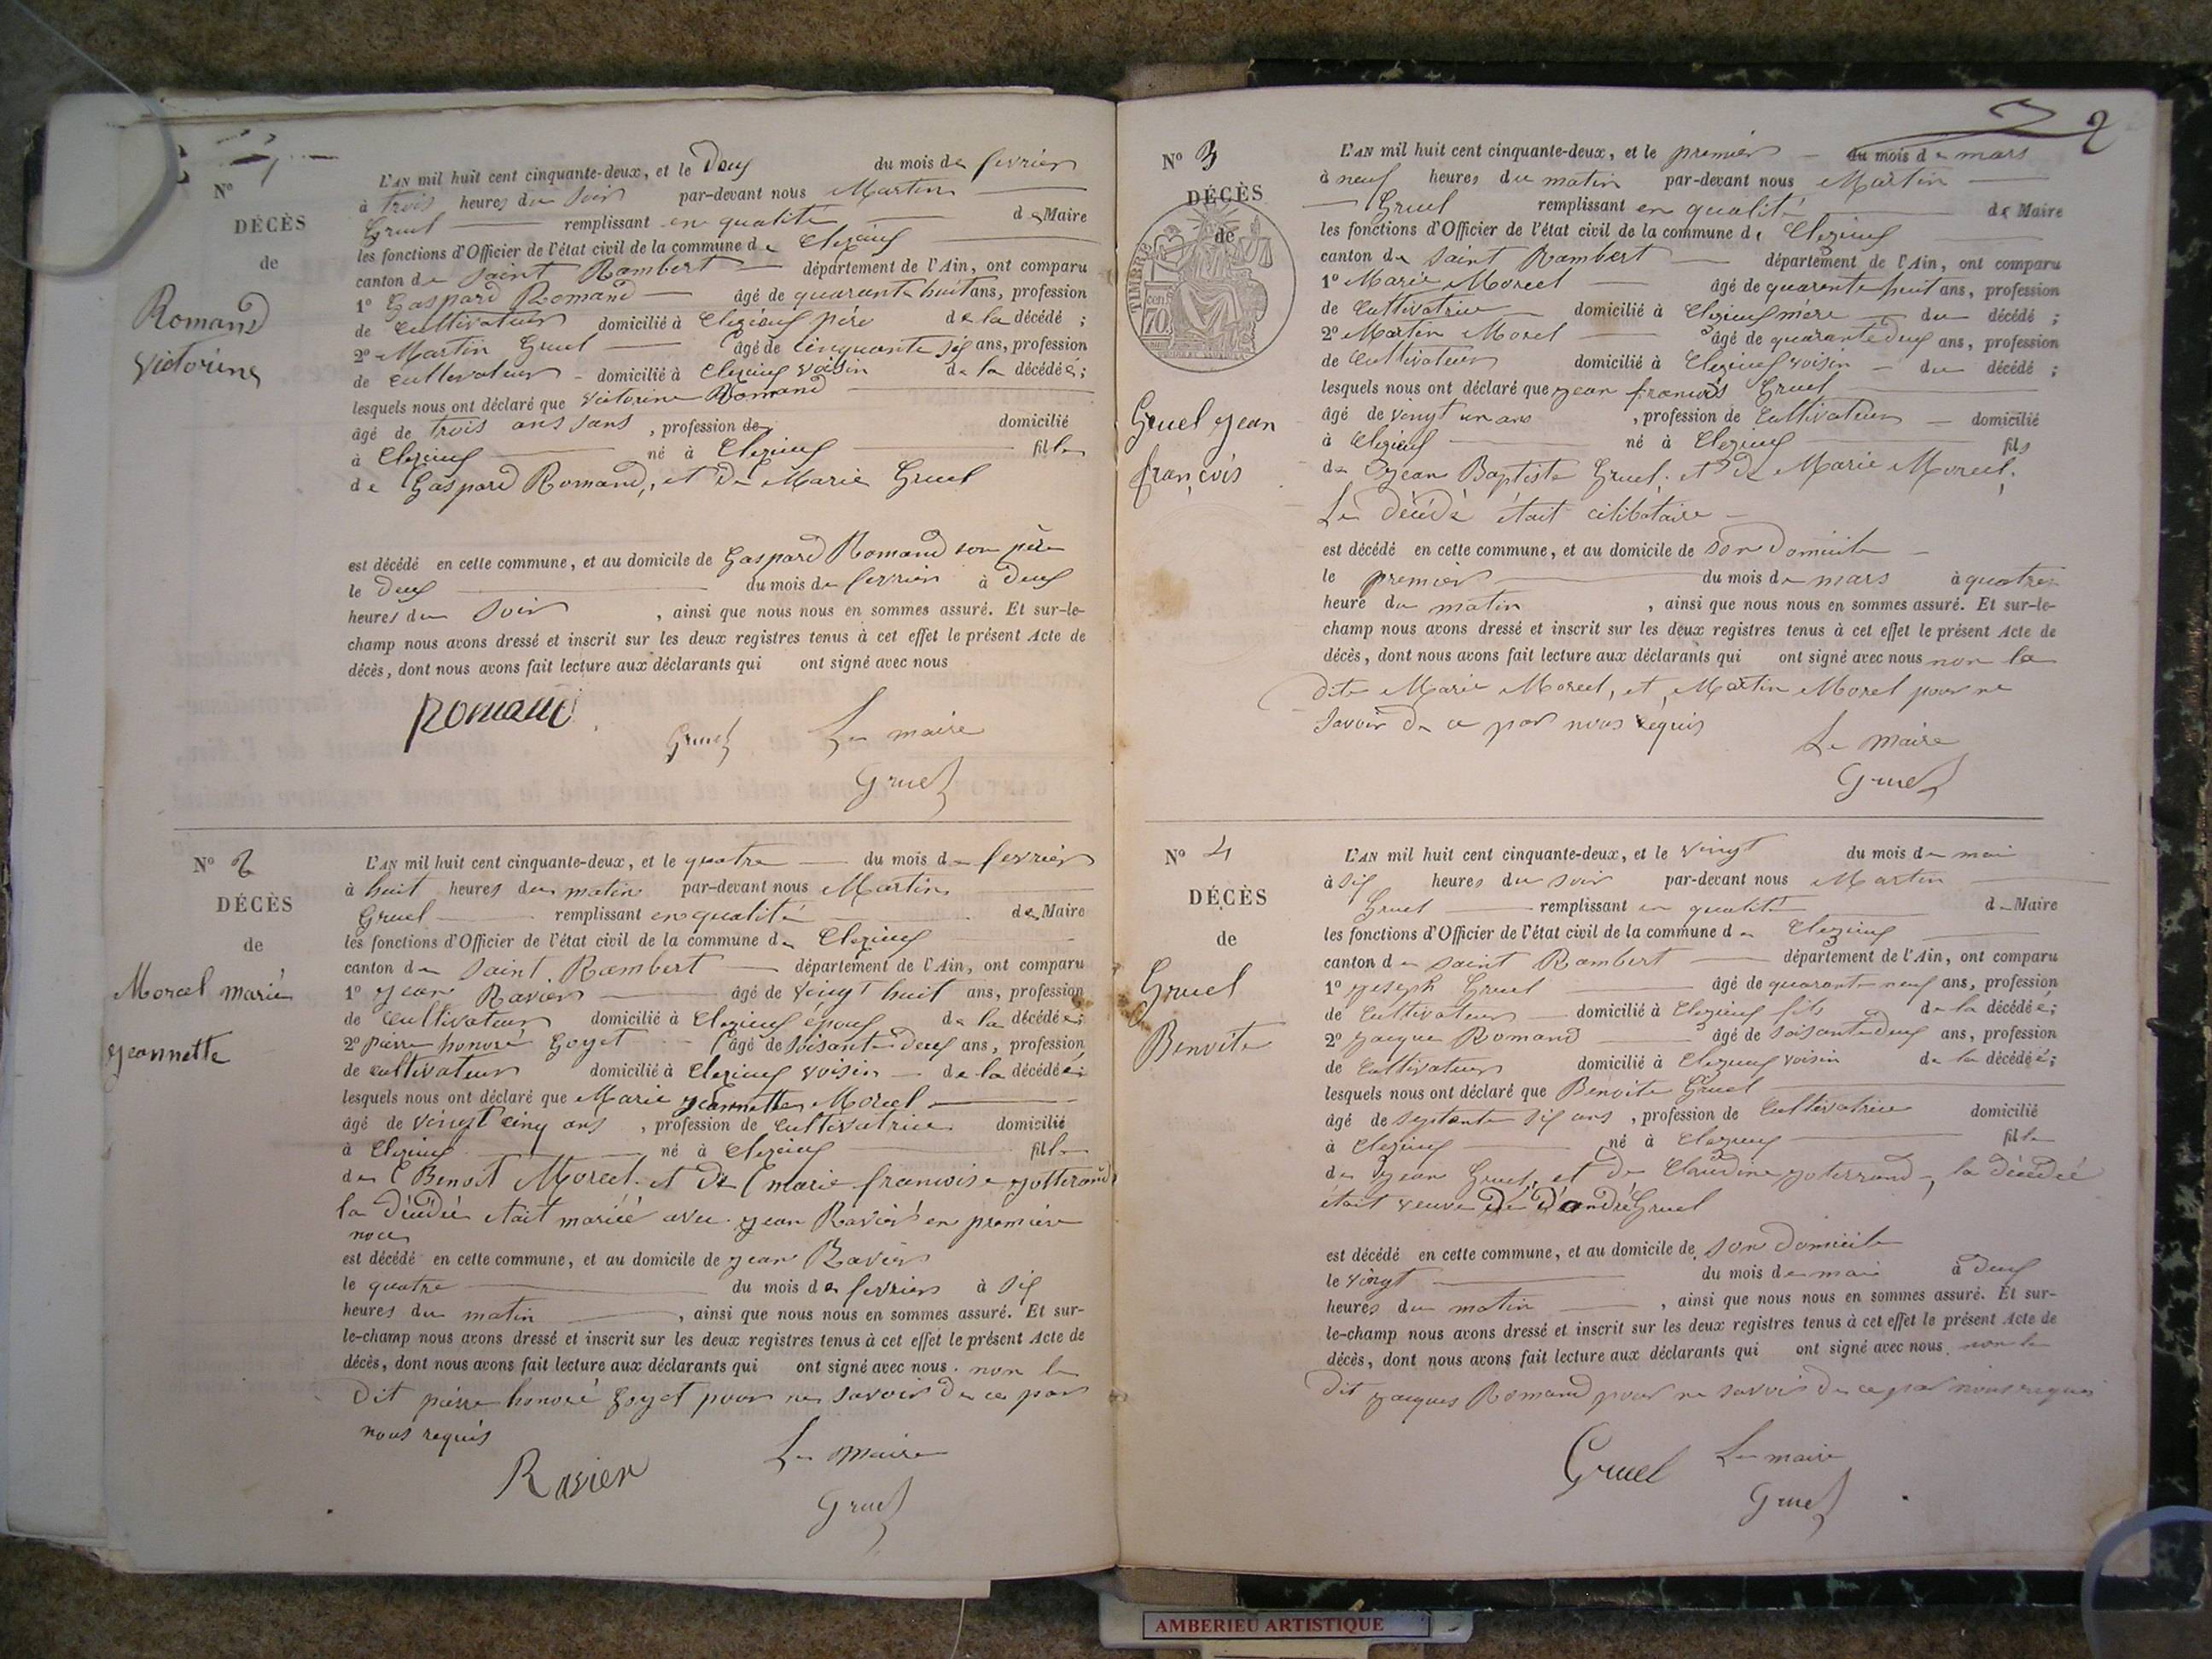 N° 1
DÉCÈS
de
Romand
Victorine
L'AN mil huit cent cinquante-deux, et le Deux du mois de fevrier
à trois heures du Soir par-devant nous Martin
Gruel remplissant en qualité de Maire
les fonctions d'Officier de l'état civil de la commune de Clezieux
canton de Saint Rambert département de l'Ain, ont comparu
1° Gaspard Romand âgé de quarante huit ans, profession
de Cultivateur domicilié à Clezieux père de la décédé ;
2° Martin Gruel âgé de Cinquante six ans, profession
de Cultivateur domicilié à Clezieux voisin de la décédée ;
lesquels nous ont déclaré que victorine Romand
âgé de trois ans sans , profession de domicilié
à Clezieux né à Clezieux fille
de Gaspard Romand, et de Marie Gruel
est décédé en cette commune, et au domicile de Gaspard Romand son père
le Deux du mois de fevrier à Deux
heures du Soir , ainsi que nous nous en sommes assuré. Et sur-le-
champ nous avons dressé et inscrit sur les deux registres tenus à cet effet le présent Acte de
décès, dont nous avons fait lecture aux déclarants qui ont signé avec nous
Romand Gruel Le maire
Gruel
N° 2
DÉCÈS
de
Morcel marie
Jeannette
L'AN mil huit cent cinquante-deux, et le quatre du mois de fevrier
à huit heures du matin par-devant nous Martin
Gruel remplissant en qualité de Maire
les fonctions d'Officier de l'état civil de la commune de Clezieux
canton de Saint Rambert département de l'Ain, ont comparu
1° Jean Ravier âgé de vingt huit ans, profession
de Cultivateur domicilié à Clezieux epoux de la décédée ;
2° pierre honoré Goyet âgé de soisante deux ans, profession
de cultivateur domicilié à Clezieux voisin de la décédée ;
lesquels nous ont déclaré que Marie Jeannette Morcel
âgé de vingt cinq ans , profession de Cultivatrice domicilié
à Clezieux né à Clezieux fille
de Benoit Morcel et De marie francoise jotterand
la décédée etait mariée avec jean Ravier en première
noce
est décédé en cette commune, et au domicile de jean Ravier
le quatre du mois de fevrier à six
heures du matin , ainsi que nous nous en sommes assuré. Et sur-
le-champ nous avons dressé et inscrit sur les deux registres tenus à cet effet le présent Acte de
décès, dont nous avons fait lecture aux déclarants qui ont signé avec nous non le
Dit pierre honoré goyet pour ne savoir de ce par
nous requis
Ravier Le Maire
Gruel
2
N° 3
DÉCÈS
de
TIMBRE
70
Gruel jean
françois
L'AN mil huit cent cinquante-deux, et le premier du mois de mars
à neuf heures du matin par-devant nous Martin
Gruel remplissant en qualité de Maire
les fonctions d'Officier de l'état civil de la commune de Clezieux
canton de Saint Rambert département de l'Ain, ont comparu
1° Marie Morcel âgé de quarante huit ans, profession
de Cultivatrice domicilié à Clezieux mère du décédé ;
2° Martin Morel âgé de quarante deux ans, profession
de Cultivateur domicilié à Clezieux voisin du décédé ;
lesquels nous ont déclaré que jean francois Gruel
âgé de vingt un ans , profession de Cultivateur domicilié
à Clezieux né à Clezieux fils
de Jean Baptiste Gruel et De Marie Morcel.
Le décédé était célibataire
est décédé en cette commune, et au domicile de son Domicile
le premier du mois de mars à quatre
heure du matin , ainsi que nous nous en sommes assuré. Et sur-le-
champ nous avons dressé et inscrit sur les deux registres tenus à cet effet le présent Acte de
décès, dont nous avons fait lecture aux déclarants qui ont signé avec nous non la
Dite Marie Morcel, et Martin Morel pour ne
Savoir De ce par nous requis
Le Maire
Gruel
N° 4
DÉCÈS
de
Gruel
Benoite
L'AN mil huit cent cinquante-deux, et le vingt du mois de mai
à six heures du soir par-devant nous Martin
Gruel remplissant en qualité de Maire
les fonctions d'Officier de l'état civil de la commune de Clezieux
canton de saint Rambert département de l'Ain, ont comparu
1° joseph Gruel âgé de quarante neuf ans, profession
de Cultivateur domicilié à Clezieux fils de la décédée ;
2° jacque Romand âgé de soisante deux ans, profession
de Cultivateur domicilié à Clezieux voisin de la décédée ;
lesquels nous ont déclaré que Benoite Gruel
âgé de septante six ans , profession de Cultivatrice domicilié
à Clezieux né à Clezieux fille
de jean Gruel, et de Claudine joterrand, la décédée
etait veuve De D'andré Gruel
est décédé en cette commune, et au domicile de son Domicile
le vingt du mois de mai à Deux
heures du matin , ainsi que nous nous en sommes assuré. Et sur-
le-champ nous avons dressé et inscrit sur les deux registres tenus à cet effet le présent Acte de
décès, dont nous avons fait lecture aux déclarants qui ont signé avec nous non le
Dit jacques Romand pour ne savoir de ce par nous requis
Gruel Le maire
Gruel
AMBERIEU ARTISTIQUE